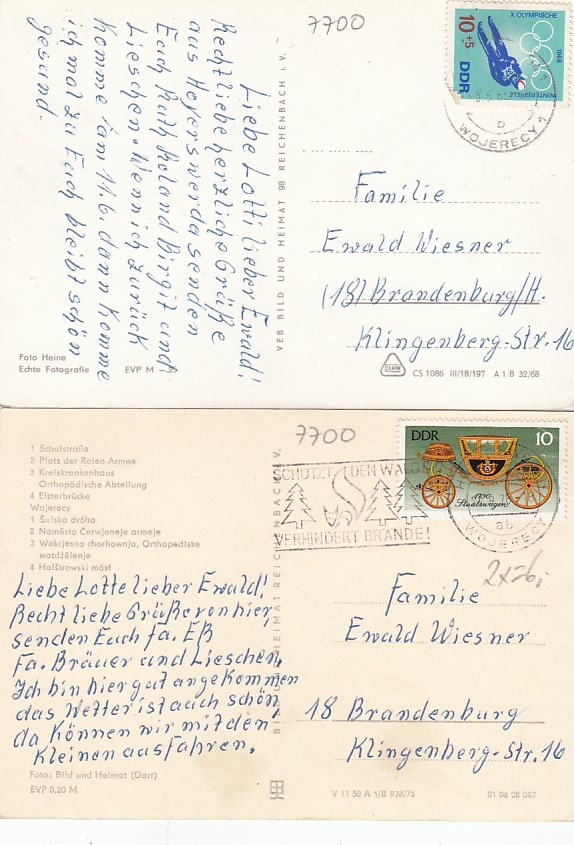 7700
X. OLYMPISCHE
WINTERSPIELE
1968
10+5
DDR
WOJERECY 1
b
Liebe Lotti lieber Ewald!
Recht liebe herzliche Grüße
aus Hoyerswerda senden
Euch Ruth Roland Birgit und
Lieschen. Wenn ich zurück
komme am 11.6. dann komme
ich mal zu Euch bleibt schön
gesund.
Familie
Ewald Wiesner
(18) Brandenburg/H.
Klingenberg-Str. 16
VEB BILD UND HEIMAT 98 REICHENBACH I. V.
Foto Heine
Echte Fotografie EVP M
DAMW
CS 1086 III/18/197 A 1/B 32/68
7700
DDR
10
1790
Staatswagen
SCHÜTZT DEN WALD
VERHINDERT BRÄNDE!
WOJERECY
ab
1 Schulstraße
2 Platz der Roten Armee
3 Kreiskrankenhaus
Orthopädische Abteilung
4 Elsterbrücke
Wojerecy
1 Šulska dróha
2 Naměsto Čerwjeneje armeje
3 Wokrjesna chorhownja, Orthopediske
wotdźělenje
4 Halštrowski móst
Liebe Lotte lieber Ewald!
Recht liebe Grüße von hier,
senden Euch fa. Eß
Fa. Bräuer und Lieschen,
Ich bin hier gut angekommen
das Wetter ist auch schön,
da können wir mit den
Kleinen ausfahren.
Familie
Ewald Wiesner
18 Brandenburg
Klingenberg-Str. 16
HEIMAT REICHENBACH I. V.
Fotos: Bild und Heimat (Darr)
EVP 0,20 M
V 11 50 A 1/B 938/75
01 06 08 087